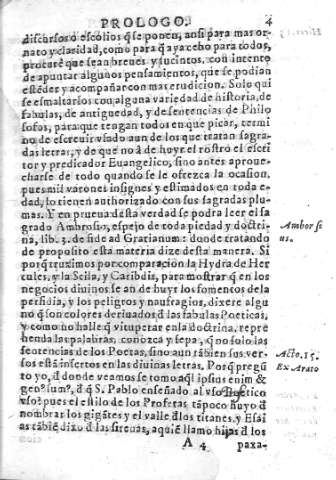 PROLOGO. 4
discursos o escolios q̃ se ponen, ansi para mas or-
nato y claridad, como para q̃ aya cebo para todos,
procurè que sean breues y sucintos, con intento
de apuntar algunos pensamientos, que se podian
estẽder y acompañar con mas erudicion. Solo qui
se esmaltarlos con alguna variedad de historia, de
fabulas, de antiguedad, y de sentencias de Philo
sofos, para que tengan todos en que picar, termi
no de escreuir vsado aun de los que tratan sagra-
das letras, y de que no à de huyr el rostro el escri
tor y predicador Euangelico, sino antes aproue-
charse de todo quando se le ofrezca la ocasion,
pues mil varones insignes y estimados en toda e-
dad, lo tienen authorizado con sus sagradas plu-
mas. Y en prueua desta verdad se podra leer el sa
grado Ambrosio, espejo de toda piedad y doctri-
na, lib. 3. de fide ad Gratianum: donde tratando
de proposito esta materia dize desta manera. Si
porq̃ truximos por comparacion la Hydra de Her
cules, y la Scila, y Caribdis, para mostrar q̃ en los
negocios diuinos se an de huyr los fomentos de la
perfidia, y los peligros y naufragios, dixere algu
no q̃ son colores deriuados d̃ las fabulas Poeticas,
y como no halle q̃ vituperar en la doctrina, repre
henda las palabras, conozca y sepa, q̃ no solo las
sentencias de los Poetas, sino aun tãbien sus ver-
sos està insertos en las diuinas letras. Porq̃ pregũ
to yo, d̃ donde veamos se tomo aq̃l ipsius enim &
gen⁹ sum⁹, d̃ q̃ S. Pablo enseñado al vso Poetico
vso? pues el estilo de los Profetas tãpoco huyo d̃
nombrar los gigãtes y el valle d̃los titanes, y Esai
as tãbiẽ dixo d̃ las sirenas, aquiẽ llamo hijas d̃ los
A 4 paxa-
Ambrosi
us.
Acto. 15.
Ex Arato